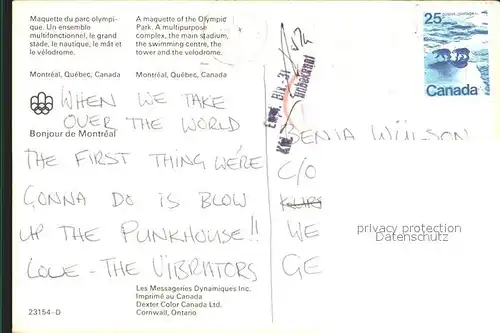 Maquette du parc olympi-
que. Un ensemble
multifonctionnel, le grand
stade, le nautique, le mât et
le vélodrome.
Montréal, Québec, Canada
A maquette of the Olympic
Park. A multipurpose
complex, the main stadium,
the swimming centre, the
tower and the velodrome.
Montréal, Québec, Canada
Bonjour de Montréal
WHEN WE TAKE
OVER THE WORLD
THE FIRST THING WE'RE
GONNA DO IS BLOW
UP THE PUNKHOUSE!!
LOVE - THE VIBRATORS
Les Messageries Dynamiques Inc.
Imprimé au Canada
Dexter Color Canada Ltd.
Cornwall, Ontario
23154-D
25
Canada
Empf.
unbekannt
C/O
WE
GE
privacy protection
Datenschutz